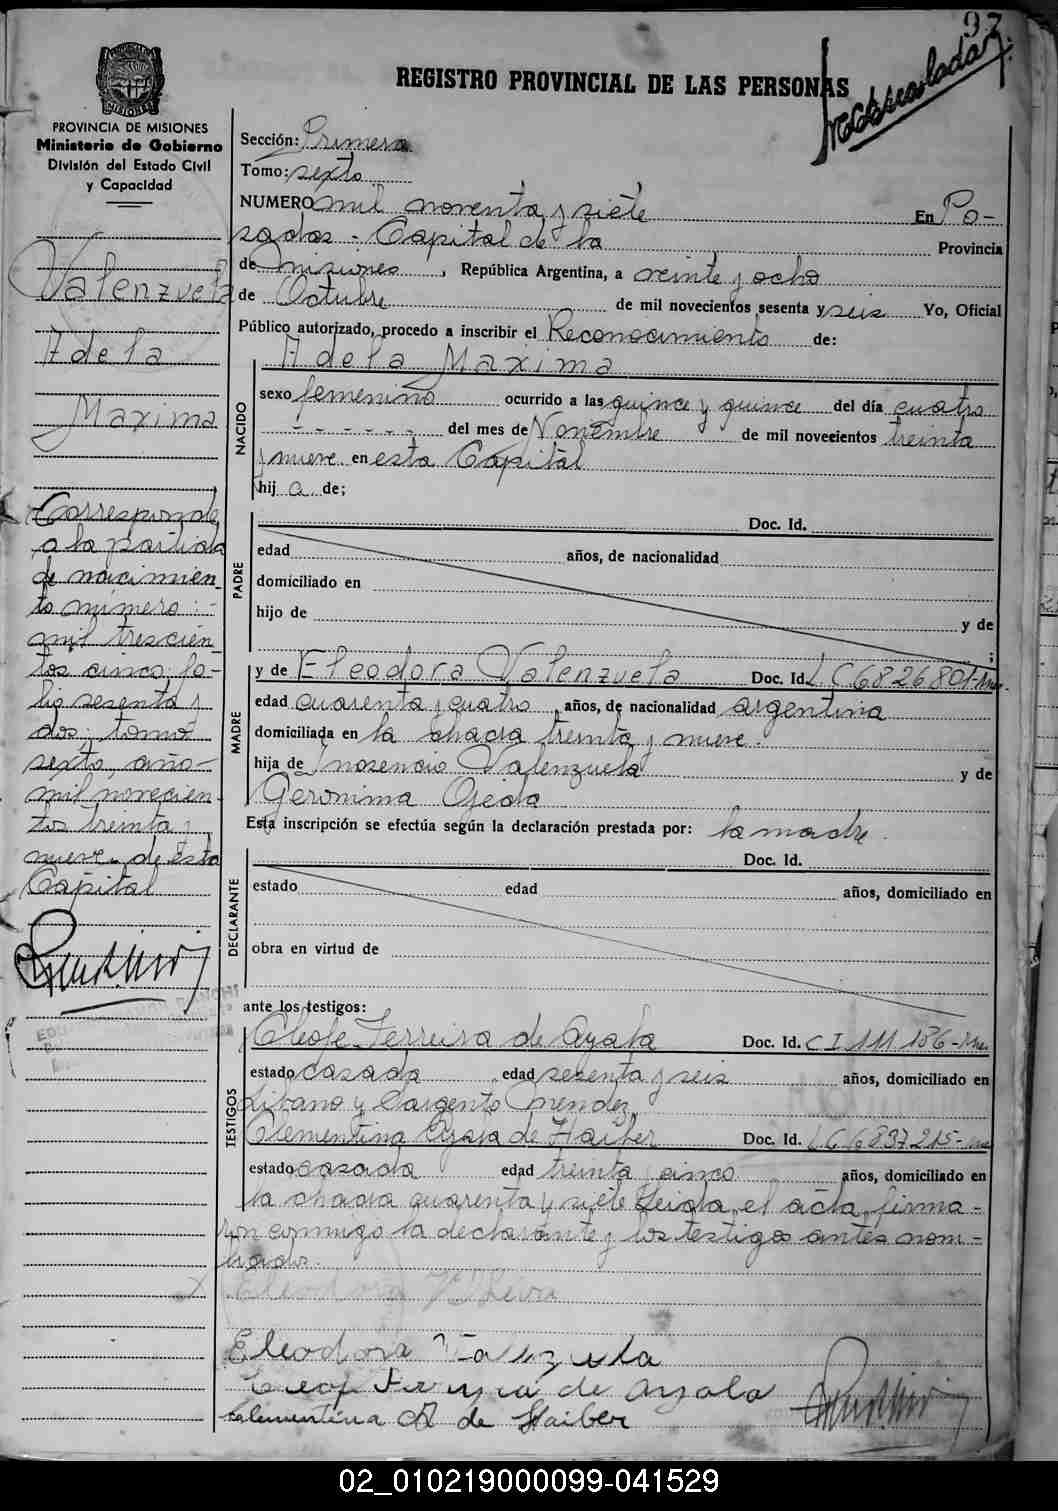 97
REGISTRO PROVINCIAL DE LAS PERSONAS
PROVINCIA DE MISIONES
Ministerio de Gobierno
División del Estado Civil
y Capacidad
Valenzuela
Adela
Maxima
Corresponde
a la partida
de nacimien
to número:
mil trescien
tos cinco; fo-
lio sesenta y
dos; tomo
sexto, año-
mil novecien
tos treinta y
nueve de esta
Capital
Sección: Primera
Tomo: sexto
NUMERO mil noventa y siete En Po-
sadas - Capital de la Provincia
de Misiones, República Argentina, a veinte y ocho
de Octubre de mil novecientos sesenta y seis Yo, Oficial
Público autorizado, procedo a inscribir el Reconocimiento de:
Adela Maxima
NACIDO
sexo femenino ocurrido a las quince y quince del día cuatro
- - - - - - del mes de Noviembre de mil novecientos treinta
y nueve en esta Capital
hij a de;
PADRE
Doc. Id.
edad años, de nacionalidad
domiciliado en
hijo de y de
;
MADRE
y de Eleodora Valenzuela Doc. Id. L C 6826801-
edad cuarenta y cuatro años, de nacionalidad argentina
domiciliada en la chacra treinta y nueve.
hija de Inosencio Valenzuela y de
Geronima Ojeda
Esta inscripción se efectúa según la declaración prestada por: la madre.
DECLARANTE
Doc. Id.
estado edad años, domiciliado en
obra en virtud de
ante los testigos:
TESTIGOS
Cleofe Ferreira de Ayala Doc. Id. C I 111 136-
estado casada edad sesenta y seis años, domiciliado en
Libano y Sargento Mendez
Clementina Ayala de Haiber Doc. Id. L C 6837215-
estado casada edad treinta y cinco años, domiciliado en
la chacra cuarenta y siete Leida el acta, firma-
ron conmigo la declarante y los testigos antes nom-
brados.
Eleodora
Eleodora Valenzuela
de Ayala
Clementina A de Haiber
02_010219000099-041529